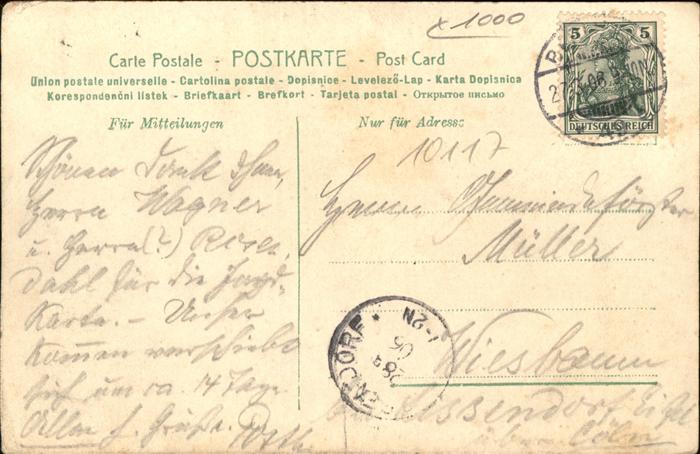 x 1000
Carte Postale - POSTKARTE - Post Card
Union postale universelle - Cartolina postale - Dopisnice - Levelező-Lap - Karta Dopisnica
Korespondenční listek - Briefkaart - Brefkort - Tarjeta postal - Открытое письмо
Für Mitteilungen
Nur für Adresse
5 5
DEUTSCHES REICH
10117
Schönen Dank
Herrn Wagner
u. Herrn (?) Rosen
dahl für die Jagd-
Karte. – Unser
Kommen verschiebt
sich um ca 14 Tage
Allen h. Grüße
Herrn Gemeindeförster
Müller
Wiesbaum
Lissendorf Eifel
über Cöln
ENDORF
1-2N